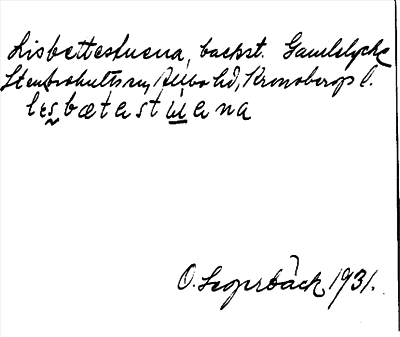 Lisbettestuena, backst. Gamlslycke
Stenbrohults sn, Allbo hd, Kronobergs l.
lesbætastuena
O. Sognebäck 1931.